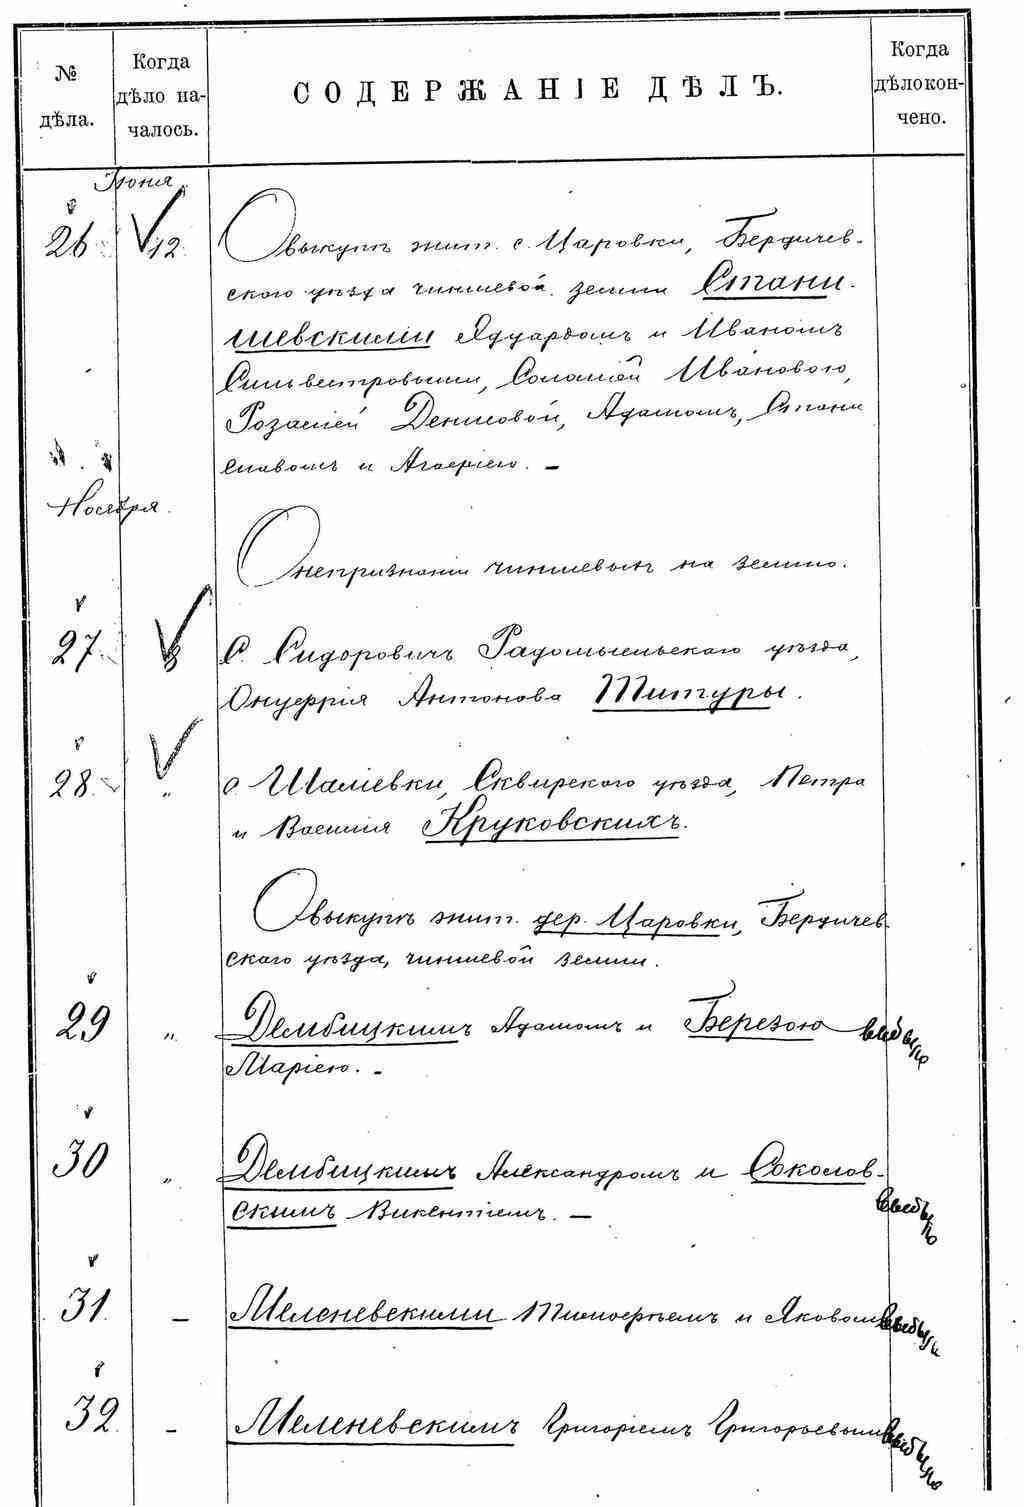 № дѣла.
Когда дѣло на-
чалось.
СОДЕРЖАНІЕ ДѢЛЪ.
Когда дѣло кон-
чено.
Іюня
26 12 О выкупѣ жит. с. Царовки, Бердичев-
скаго уѣзда чиншевой земли Стани-
шевскими Эдуардомъ и Иваномъ
Сильвестровыми, Соломіей Ивановою,
Розаліей Денисовой, Адамомъ, Стани
славомъ и Агаѳіею. –
Ноября
О непризнаніи чиншевымъ на землю.
27 С. Сидоровичъ Радомысльскаго уѣзда,
Онуфрія Антонова Титуры.
28 „ с. Шаліевки, Сквирскаго уѣзда, Петра
и Василія Круковскихъ.
О выкупѣ жит. дер. Царовки, Бердичев-
скаго уѣзда, чиншевой земли.
29 „ Дембицкимъ Адамомъ и Березою выбыло
Маріею. –
30 „ Дембицкимъ Александромъ и Соколов-
скимъ Викентіемъ. – выбыло
31 – Меленевскими Тимофеемъ и Яковомъ выбыли
32 – Меленевскимъ Григоріемъ Григорьевымъ выбыло